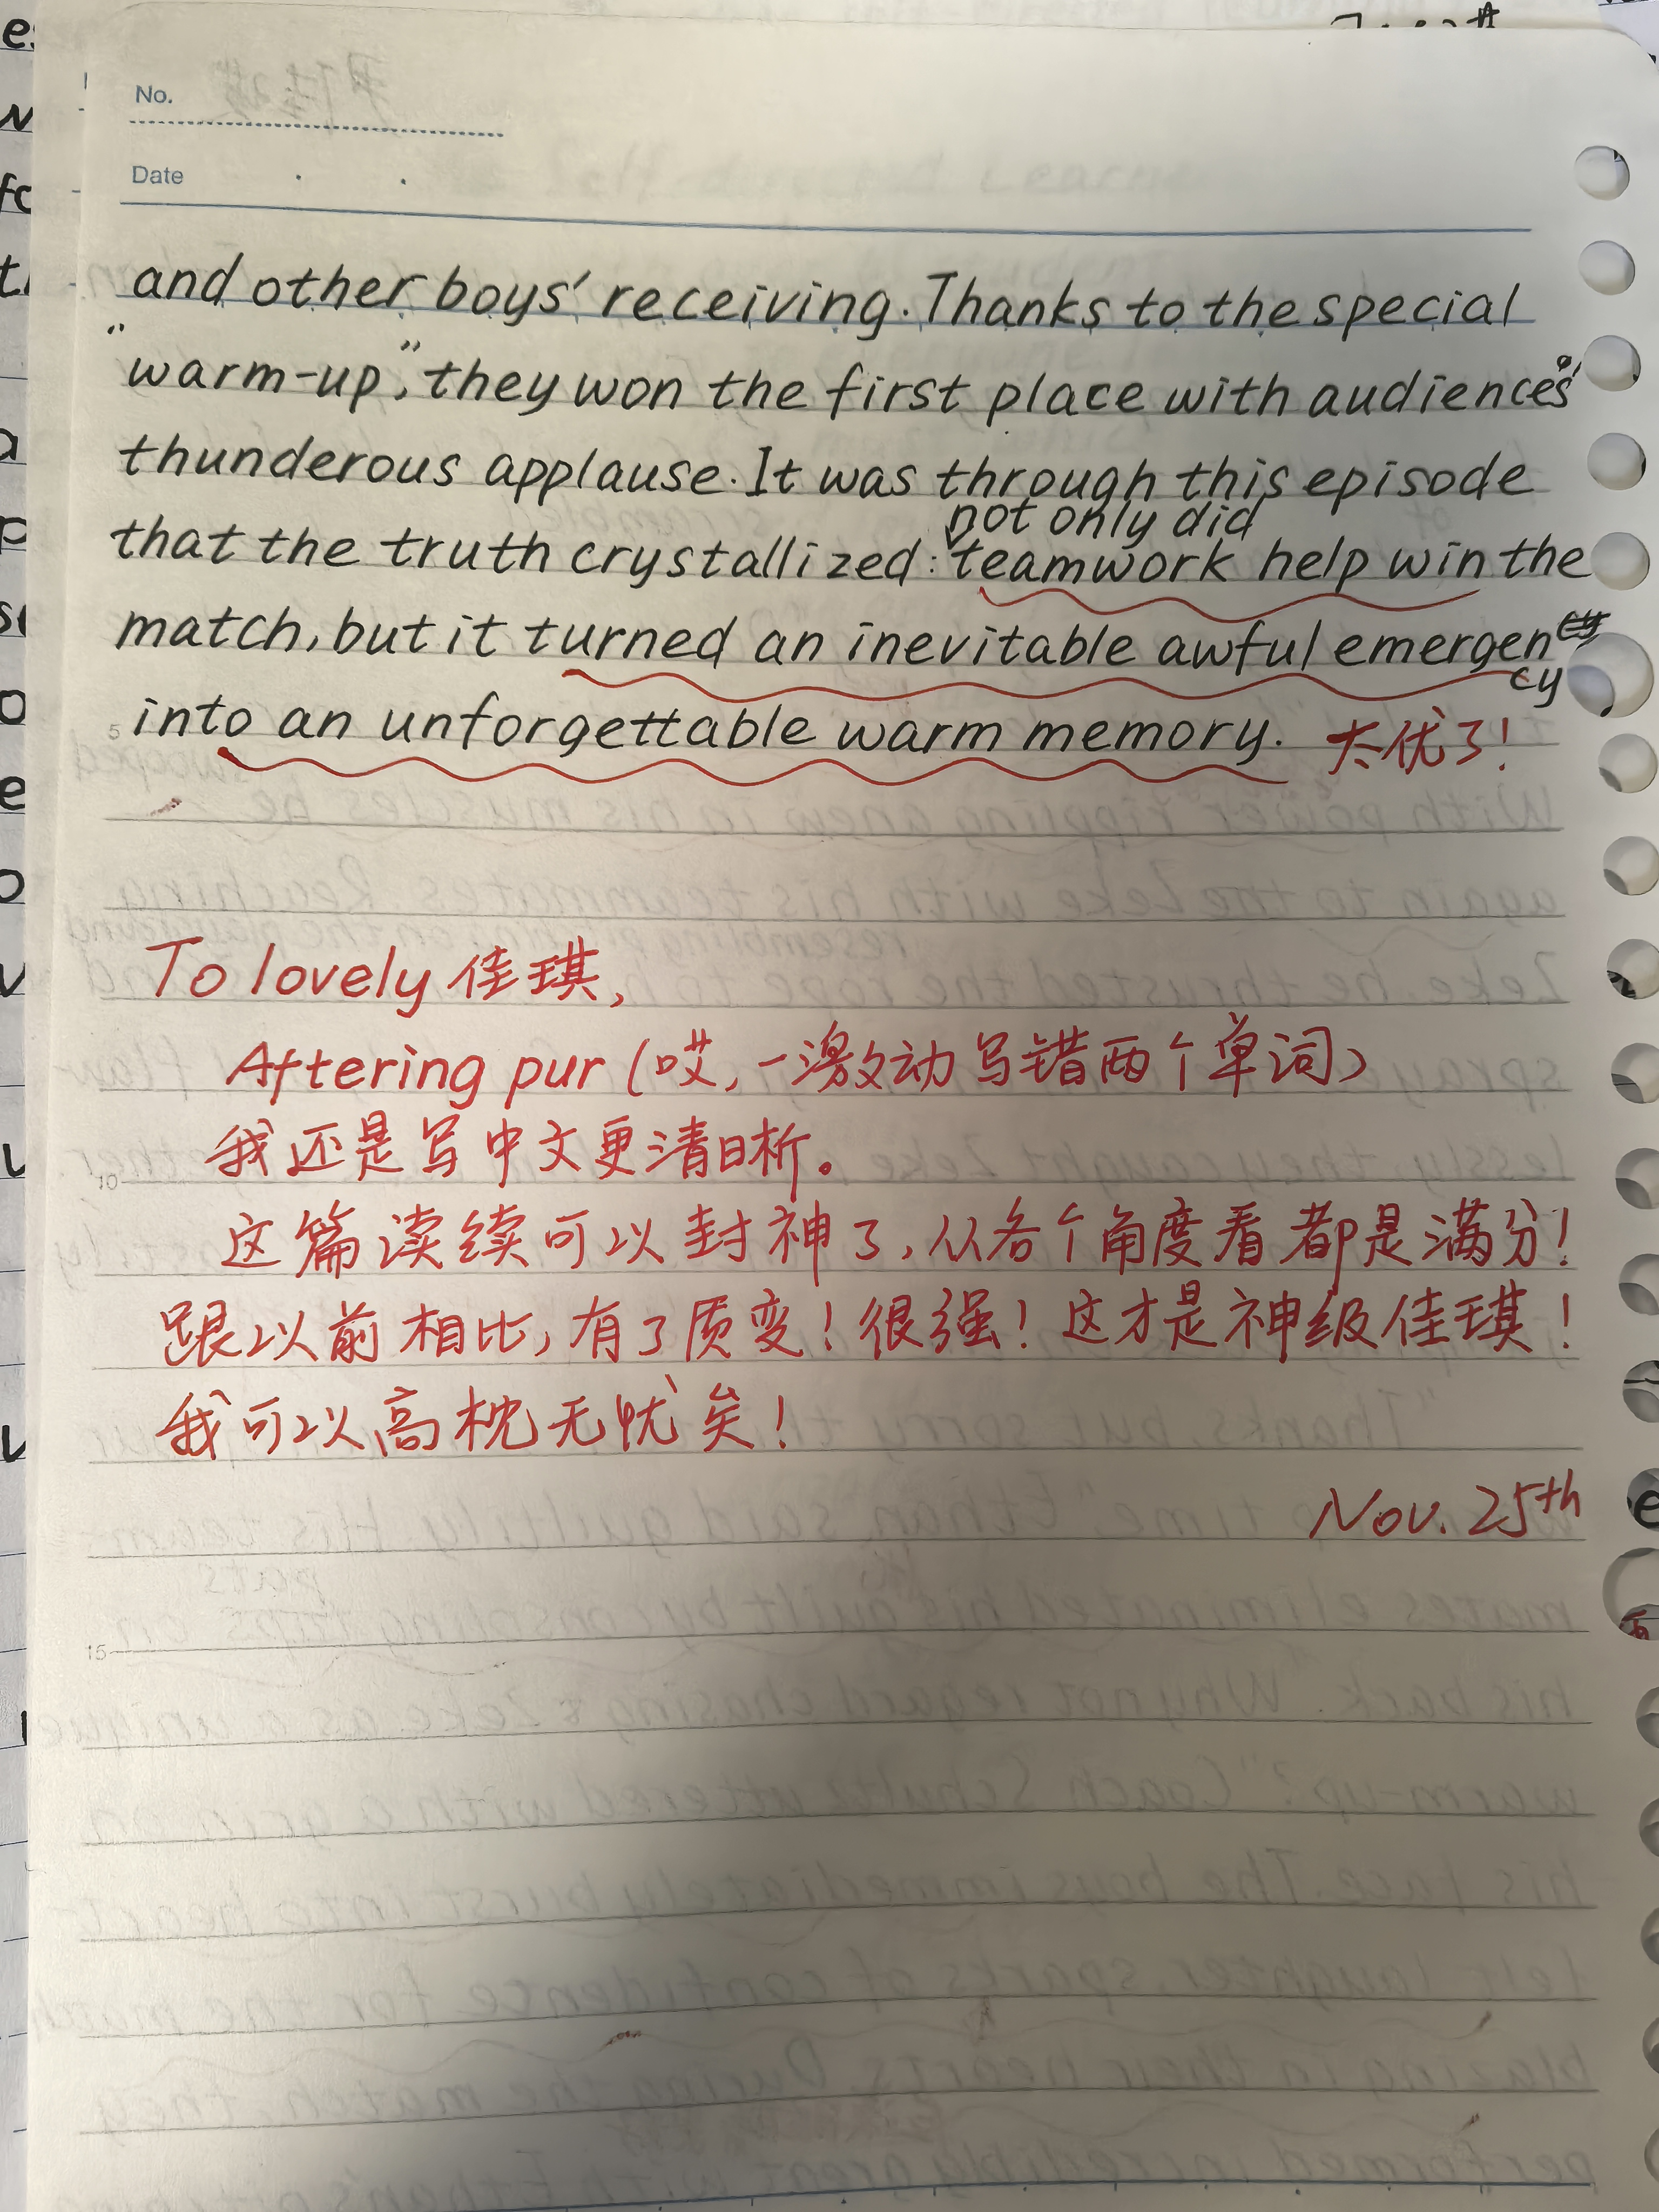 No.
Date
and other boys' receiving. Thanks to the special
"warm-up", they won the first place with audiences'
thunderous applause. It was through this episode
not only did
that the truth crystallized: teamwork help win the
match, but it turned an inevitable awful emergen
cy
5 into an unforgettable warm memory. 太优了!
To lovely 佳琪,
Aftering pur (哎,一激动写错两个单词)
我还是写中文更清晰。
10
这篇读续可以封神了,从各个角度看都是满分!
跟以前相比,有了质变!很强!这才是神级佳琪!
我可以高枕无忧矣!
Nov. 25th
15